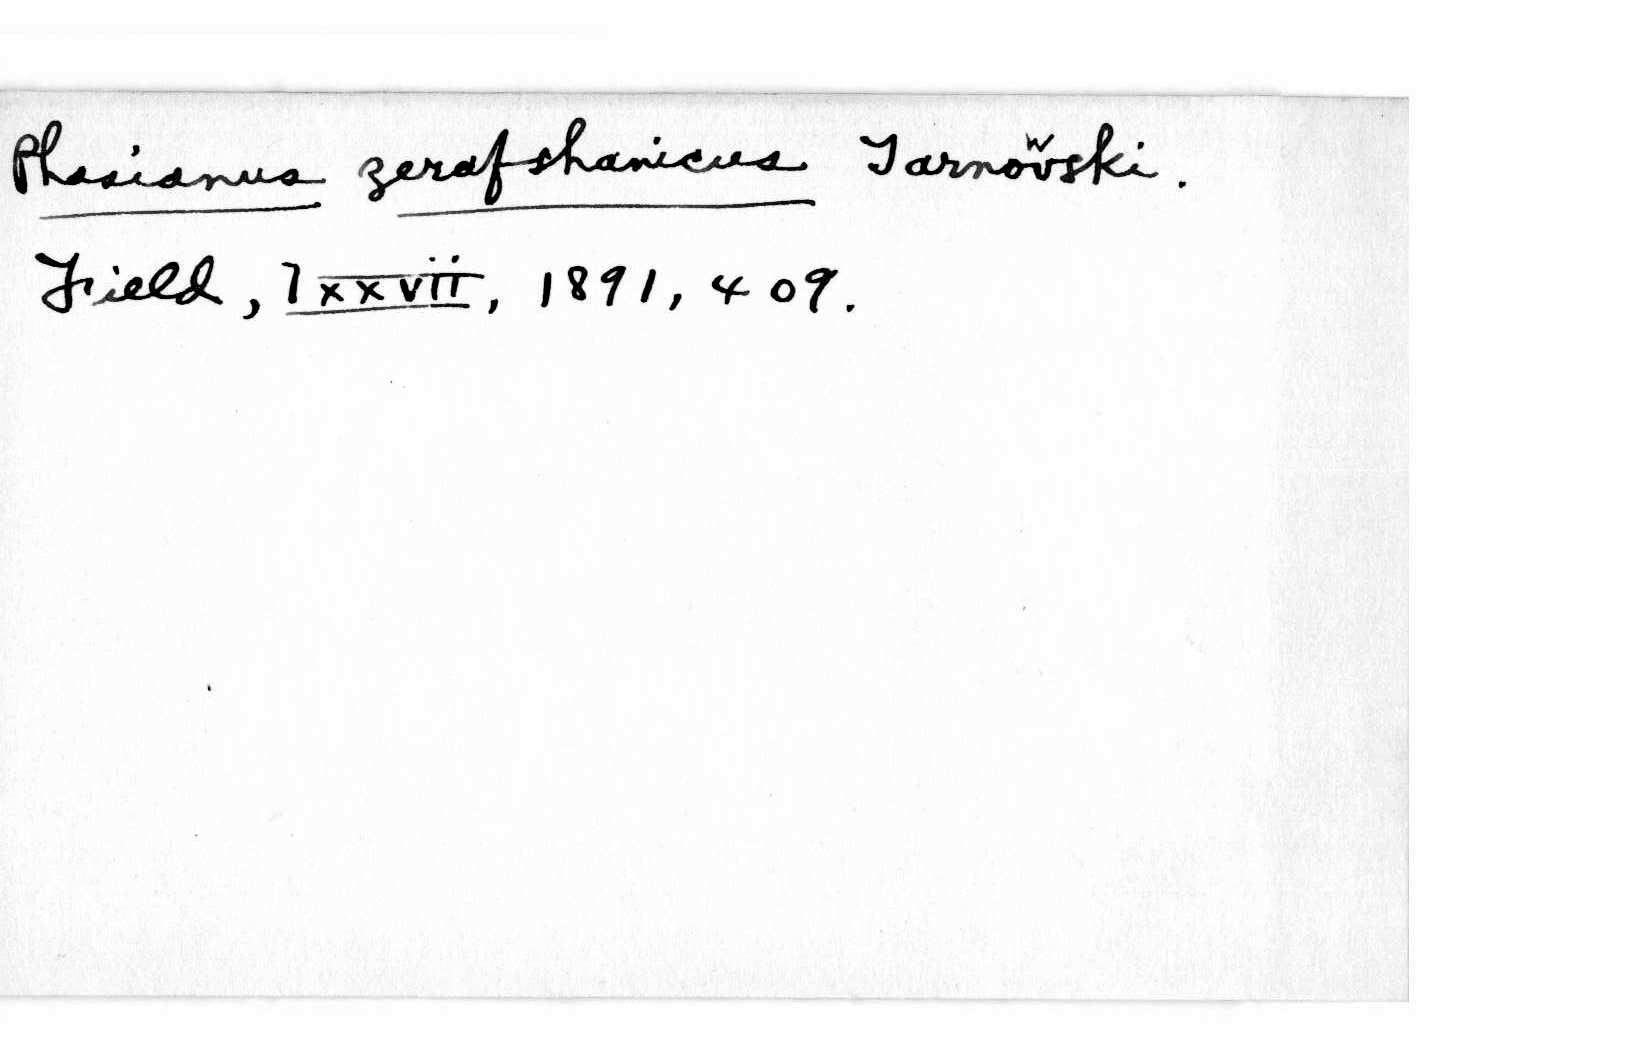 Phasianus zerafshanicus Tarnowski.
Field, lxxvii, 1891, 409.